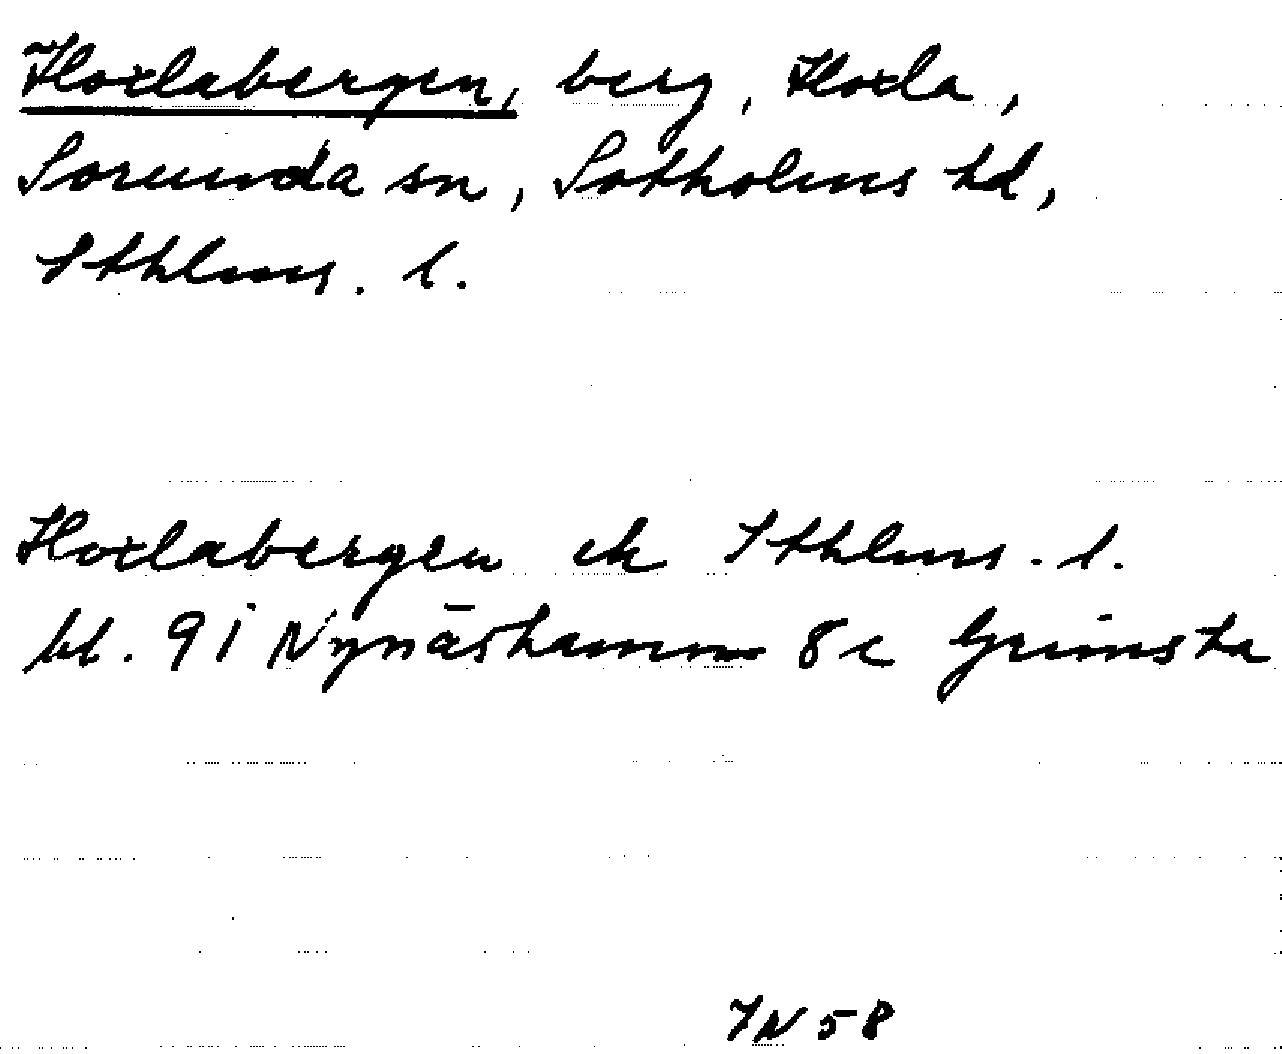 Hoxlabergen, berg, Hoxla,
Sorunda sn, Sotholms hd,
Sthlms. l.
Hoxlabergen ek Sthlms. l.
bl. 9 I Nynäshamn 8 c Grimsta
58